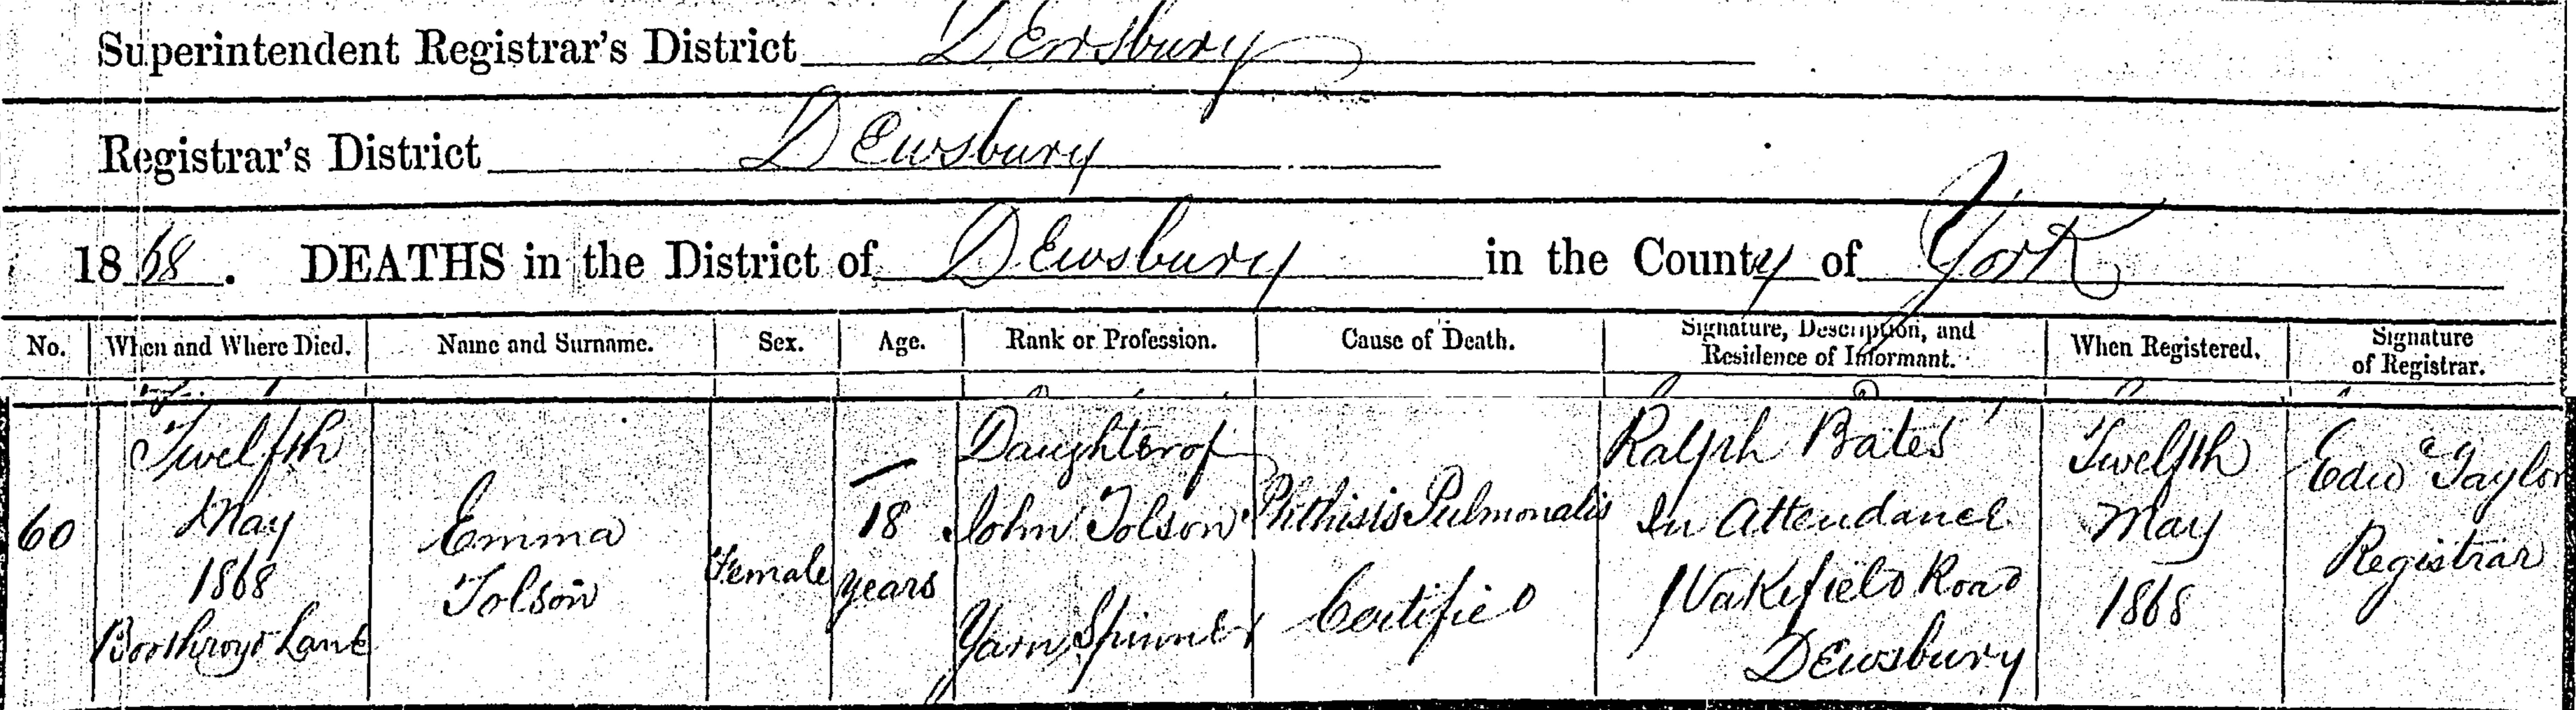 Superintendent Registrar's District Dewsbury
Registrar's District Dewsbury
1868. DEATHS in the District of Dewsbury in the County of York
No. When and Where Died. Name and Surname. Sex. Age. Rank or Profession. Cause of Death. Signature, Description, and Residence of Informant. When Registered. Signature of Registrar.
60
Twelfth
May
1868
Boothroyd Lane
Emma
Tolson
Female
18
years
Daughter of
John Tolson
Yarn Spinner
Phthisis Pulmonalis
Certified
Ralph Bates
In Attendance
Wakefield Road
Dewsbury
Twelfth
May
1868
Edwd Taylor
Registrar